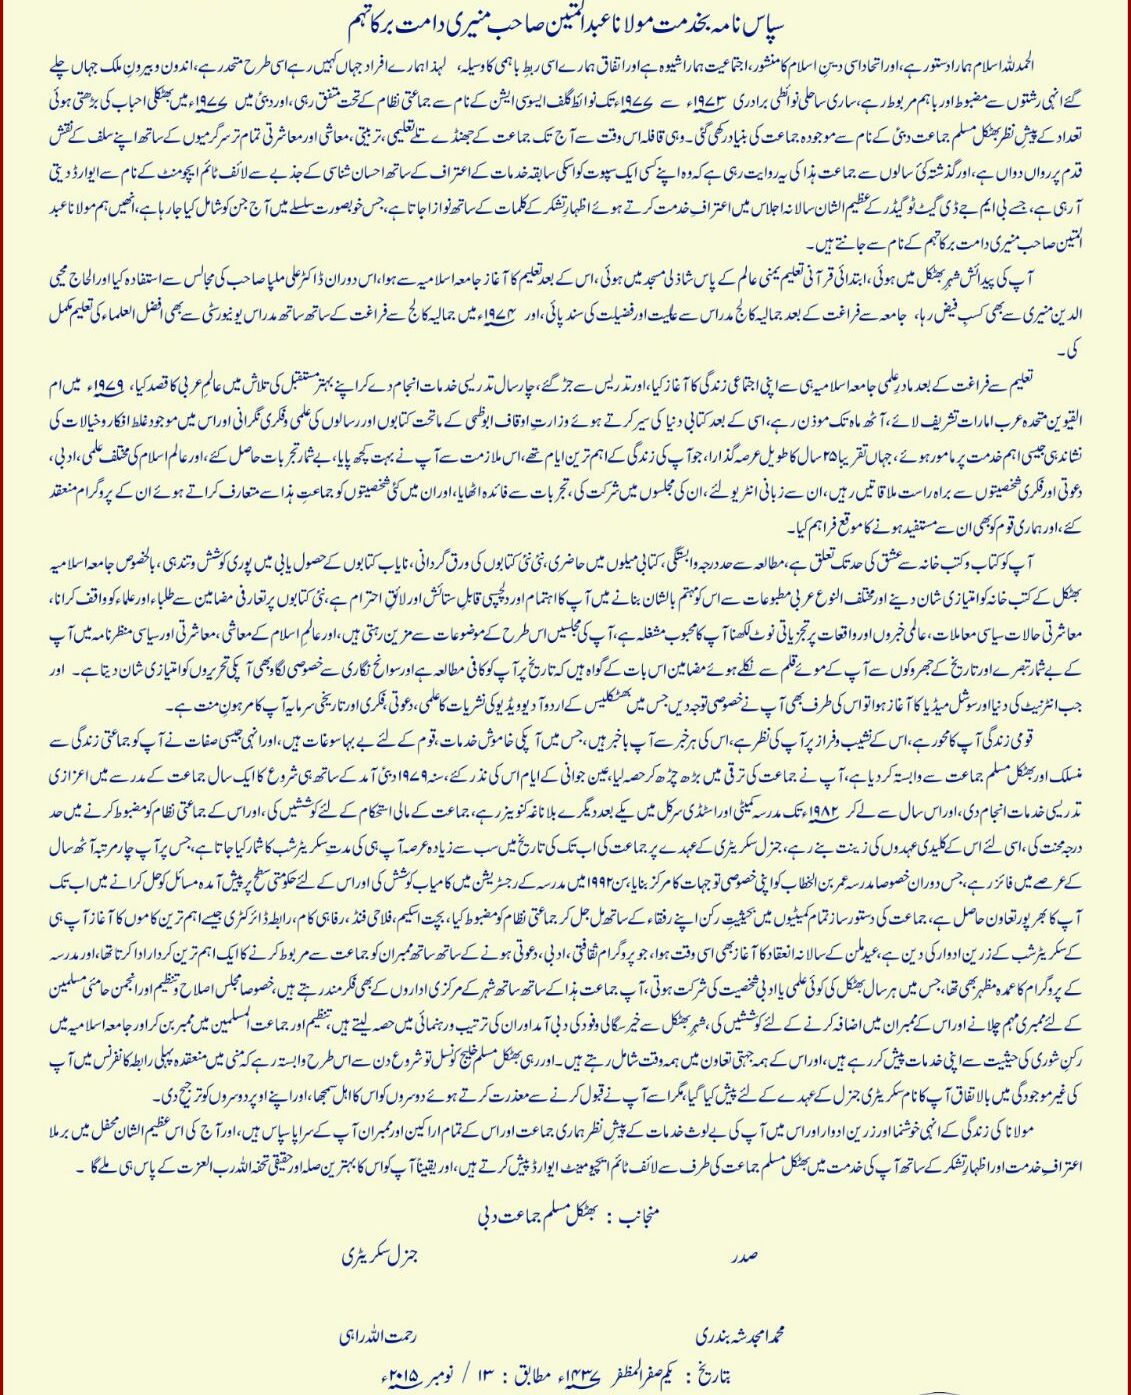 سپاس نامہ بخدمت مولانا عبدالمتین صاحب منیری دامت برکاتہم
الحمدللہ اسلام ہمارا دستور ہے، اور اتحاد اسی دینِ اسلام کا منشور، اجتماعیت ہمارا شیوہ ہے اور اتفاق ہمارے اسی ربطِ باہمی کا وسیلہ، لہٰذا ہمارے افراد جہاں کہیں رہے اسی طرح متحد رہے، اندون و بیرونِ ملک جہاں چلے
گئے انہی رشتوں سے مضبوط اور باہم مربوط رہے، ساری ساحلی نوائطی برادری ۱۹۷۳ء سے ۱۹۷۷ء تک نوائط گلف ایسوسی ایشن کے نام سے جماعتی نظام کے تحت متفق رہی، اور دبئی میں ۱۹۷۷ء میں بھٹکلی احباب کی بڑھتی ہوئی
تعداد کے پیشِ نظر بھٹکل مسلم جماعت دبئی کے نام سے موجودہ جماعت کی بنیاد رکھی گئی۔ وہی قافلہ اس وقت سے آج تک جماعت کے جھنڈے تلے تعلیمی، تربیتی، معاشی اور معاشرتی تمام تر سرگرمیوں کے ساتھ اپنے سلف کے نقش
قدم پر رواں دواں ہے، اور گذشتہ کئی سالوں سے جماعت ہذا کی یہ روایت رہی ہے کہ وہ اپنے کسی ایک سپوت کو اسکی سابقہ خدمات کے اعتراف کے ساتھ احسان شناسی کے جذبے سے لائف ٹائم ایچومنٹ کے نام سے ایوارڈ دیتی
آرہی ہے، جسے بی ایم جے ڈی گیٹ ٹو گیڈر کے عظیم الشان سالانہ اجلاس میں اعترافِ خدمت کرتے ہوئے اظہارِ تشکر کے کلمات کے ساتھ نوازا جاتا ہے، جس خوبصورت سلسلے میں آج جن کو شامل کیا جارہا ہے، انھیں ہم مولانا عبد
المتین صاحب منیری دامت برکاتہم کے نام سے جانتے ہیں۔
آپ کی پیدائش شہر بھٹکل میں ہوئی، ابتدائی قرآنی تعلیم یمنی عالم کے پاس شاذلی مسجد میں ہوئی، اس کے بعد تعلیم کا آغاز جامعہ اسلامیہ سے ہوا، اس دوران ڈاکٹر علی ملپا صاحب کی مجالس سے استفادہ کیا اور الحاج محیی
الدین منیری سے بھی کسبِ فیض رہا، جامعہ سے فراغت کے بعد جمالیہ کالج مدراس سے عالمیت اور فضیلت کی سند پائی، اور ۱۹۷۴ء میں جمالیہ کالج سے فراغت کے ساتھ ساتھ مدراس یونیورسٹی سے بھی افضل العلماء کی تعلیم مکمل
کی۔
تعلیم سے فراغت کے بعد مادرِ علمی جامعہ اسلامیہ ہی سے اپنی اجتماعی زندگی کا آغاز کیا، اور تدریس سے جڑ گئے، چار سال تدریسی خدمات انجام دے کر اپنے بہتر مستقبل کی تلاش میں عالمِ عربی کا قصد کیا، ۱۹۷۹ء میں ام
القیوین متحدہ عرب امارات تشریف لائے، آٹھ ماہ تک موذن رہے، اسی کے بعد کتابی دنیا کی سیر کرتے ہوئے وزارتِ اوقاف ابوظبی کے ماتحت کتابوں اور رسالوں کی علمی و فکری نگرانی اور اس میں موجود غلط افکار و خیالات کی
نشاندہی جیسی اہم خدمت پر مامور ہوئے، جہاں تقریبا ۲۵ سال کا طویل عرصہ گذارا، جو آپ کی زندگی کے اہم ترین ایام تھے، اس ملازمت سے آپ نے بہت کچھ پایا، بے شمار تجربات حاصل کئے، اور عالمِ اسلام کی مختلف علمی، ادبی،
دعوتی اور فکری شخصیتوں سے براہ راست ملاقاتیں رہیں، ان سے زبانی انٹریو لئے، ان کی مجلسوں میں شرکت کی، تجربات سے فائدہ اٹھایا، اور ان میں کئی شخصیتوں کو جماعتِ ہذا سے متعارف کراتے ہوئے ان کے پروگرام منعقد
کئے، اور ہماری قوم کو بھی ان سے مستفید ہونے کا موقع فراہم کیا۔
آپ کو کتاب و کتب خانہ سے عشق کی حد تک تعلق ہے، مطالعہ سے حد درجہ وابستگی، کتابی میلوں میں حاضری، نئی نئی کتابوں کی ورق گردانی، نایاب کتابوں کے حصول یابی میں پوری کوشش و تندہی، بالخصوص جامعہ اسلامیہ
بھٹکل کے کتب خانہ کو امتیازی شان دینے اور مختلف النوع عربی مطبوعات سے اس کو مہتم بالشان بنانے میں آپ کا اہتمام اور دلچسپی قابلِ ستائش اور لائقِ احترام ہے، نئی کتابوں پر تعارفی مضامین سے طلباء اور علماء کو واقف کرانا،
معاشرتی حالات سیاسی معاملات، عالمی خبروں اور واقعات پر تجزیاتی نوٹ لکھنا آپ کا محبوب مشغلہ ہے، آپ کی مجلسیں اس طرح کے موضوعات سے مزین رہتی ہیں، اور عالمِ اسلام کے معاشی، معاشرتی اور سیاسی منظر نامہ میں آپ
کے بے شمار تبصرے اور تاریخ کے جھروکوں سے آپ کے موئے قلم سے نکلے ہوئے مضامین اس بات کے گواہ ہیں کہ تاریخ پر آپ کو کافی مطالعہ ہے اور سوانح نگاری سے خصوصی لگاو بھی آپکی تحریروں کو امتیازی شان دیتا ہے۔ اور
جب انٹرنیٹ کی دنیا اور سوشل میڈیا کا آغاز ہوا تو اس کی طرف بھی آپ نے خصوصی توجہ دیں جس میں بھٹکلیس کے اردو آڈیو ویڈیو کی نشریات کا علمی، دعوتی، فکری اور تاریخی سرمایہ آپ کا مرہونِ منت ہے۔
قومی زندگی آپ کا محور ہے، اس کے نشیب و فراز پر آپ کی نظر ہے، اس کی ہر خبر سے آپ باخبر ہیں، جس میں آپکی خاموش خدمات، قوم کے لئے بے بہا سوغات ہیں، اور انہی جیسی صفات نے آپ کو جماعتی زندگی سے
منسلک اور بھٹکل مسلم جماعت سے وابستہ کردیا ہے، آپ نے جماعت کی ترقی میں بڑھ چڑھ کر حصہ لیا، عین جوانی کے ایام اس کی نذر کئے، سنہ ۱۹۷۹ دبئی آمد کے ساتھ ہی شروع کا ایک سال جماعت کے مدرسے میں اعزازی
تدریسی خدمات انجام دی، اور اس سال سے لے کر ۱۹۸۲ء تک مدرسہ کمیٹی اور اسٹڈی سرکل میں یکے بعد دیگرے بلاناغہ کنوینر رہے، جماعت کے مالی استحکام کے لئے کوششیں کی، اور اس کے جماعتی نظام کو مضبوط کرنے میں حد
درجہ محنت کی، اسی لئے اس کے کلیدی عہدوں کی زینت بنے رہے، جنرل سکریٹری کے عہدے پر جماعت کی اب تک کی تاریخ میں سب سے زیادہ عرصہ آپ ہی کی مدتِ سکریٹر شب کا شمار کیا جاتا ہے، جس پر آپ چار مرتبہ آٹھ سال
کے عرصے میں فائز رہے، جس دوران خصوصا مدرسہ عمر بن الخطاب کو اپنی خصوصی توجہات کا مرکز بنایا، سن ۱۹۹۲ میں مدرسہ کے رجسٹریشن میں کامیاب کوشش کی اور اس کے لئے حکومتی سطح پر پیش آمدہ مسائل کو حل کرانے میں اب تک
آپ کا بھر پور تعاون حاصل ہے، جماعت کی دستور ساز تمام کمیٹیوں میں بحیثیتِ رکن اپنے رفقاء کے ساتھ مل جل کر جماعتی نظام کو مضبوط کیا، بچت اسکیم، فلاحی فنڈ، رفاہی کام، رابطہ ڈائرکٹری جیسے اہم ترین کاموں کا آغاز آپ ہی
کے سکریٹر شب کے زرین ادوار کی دین ہے، عید ملن کے سالانہ انعقاد کا آغاز بھی اسی وقت ہوا، جو پروگرام ثقافتی، ادبی، دعوتی ہونے کے ساتھ ساتھ ممبران کو جماعت سے مربوط کرنے کا ایک اہم ترین کردار ادا کرتا تھا، اور مدرسہ
کے پروگرام کا عمدہ مظہر بھی تھا، جس میں ہر سال بھٹکل کی کوئی علمی یا ادبی شخصیت کی شرکت ہوتی، آپ جماعت ہذا کے ساتھ ساتھ شہر کے مرکزی اداروں کے بھی فکرمند رہتے ہیں، خصوصا مجلس اصلاح و تنظیم اور انجمن حامئی مسلمین
کے لئے ممبری مہم چلانے اور اس کے ممبران میں اضافہ کرنے کے لئے کوششیں کی، شہرِ بھٹکل سے خیر سگالی وفود کی دبی آمد اور ان کی ترتیب و رہنمائی میں حصہ لیتے ہیں، تنظیم اور جماعت المسلمین میں ممبر بن کر اور جامعہ اسلامیہ میں
رکنِ شوریٰ کی حیثیت سے اپنی خدمات پیش کررہے ہیں، اور اس کے ہمہ جہتی تعاون میں ہمہ وقت شامل رہتے ہیں۔ اور رہی بھٹکل مسلم خلیج کونسل تو شروع دن سے اس طرح وابستہ رہے کہ منی میں منعقدہ پہلی رابطہ کانفرنس میں آپ
کی غیر موجودگی میں بالاتفاق آپ کا نام سکریٹری جنرل کے عہدے کے لئے پیش کیا گیا، مگر اسے آپ نے قبول کرنے سے معذرت کرتے ہوئے دوسروں کو اس کا اہل سمجھا، اور اپنے اوپر دوسروں کو ترجیح دی۔
مولانا کی زندگی کے انہی خوشنما اور زرین ادوار اور اس میں آپ کی بے لوث خدمات کے پیشِ نظر ہماری جماعت اور اس کے تمام اراکین اور ممبران آپ کے سراپا سپاس ہیں، اور آج کی اس عظیم الشان محفل میں برملا
اعترافِ خدمت اور اظہارِ تشکر کے ساتھ آپ کی خدمت میں بھٹکل مسلم جماعت کی طرف سے لائف ٹائم ایچیومینٹ ایوارڈ پیش کرتے ہیں، اور یقیناً آپ کو اس کا بہترین صلہ اور حقیقی تحفہ اللہ رب العزت کے پاس ہی ملے گا۔
منجانب : بھٹکل مسلم جماعت دبی
صدر جنرل سکریٹری
محمد امجد شہ بندری رحمت اللہ راہی
بتاریخ : یکم صفر المظفر ۱۴۳۷ء مطابق : ۱۳ / نومبر ۲۰۱۵ء